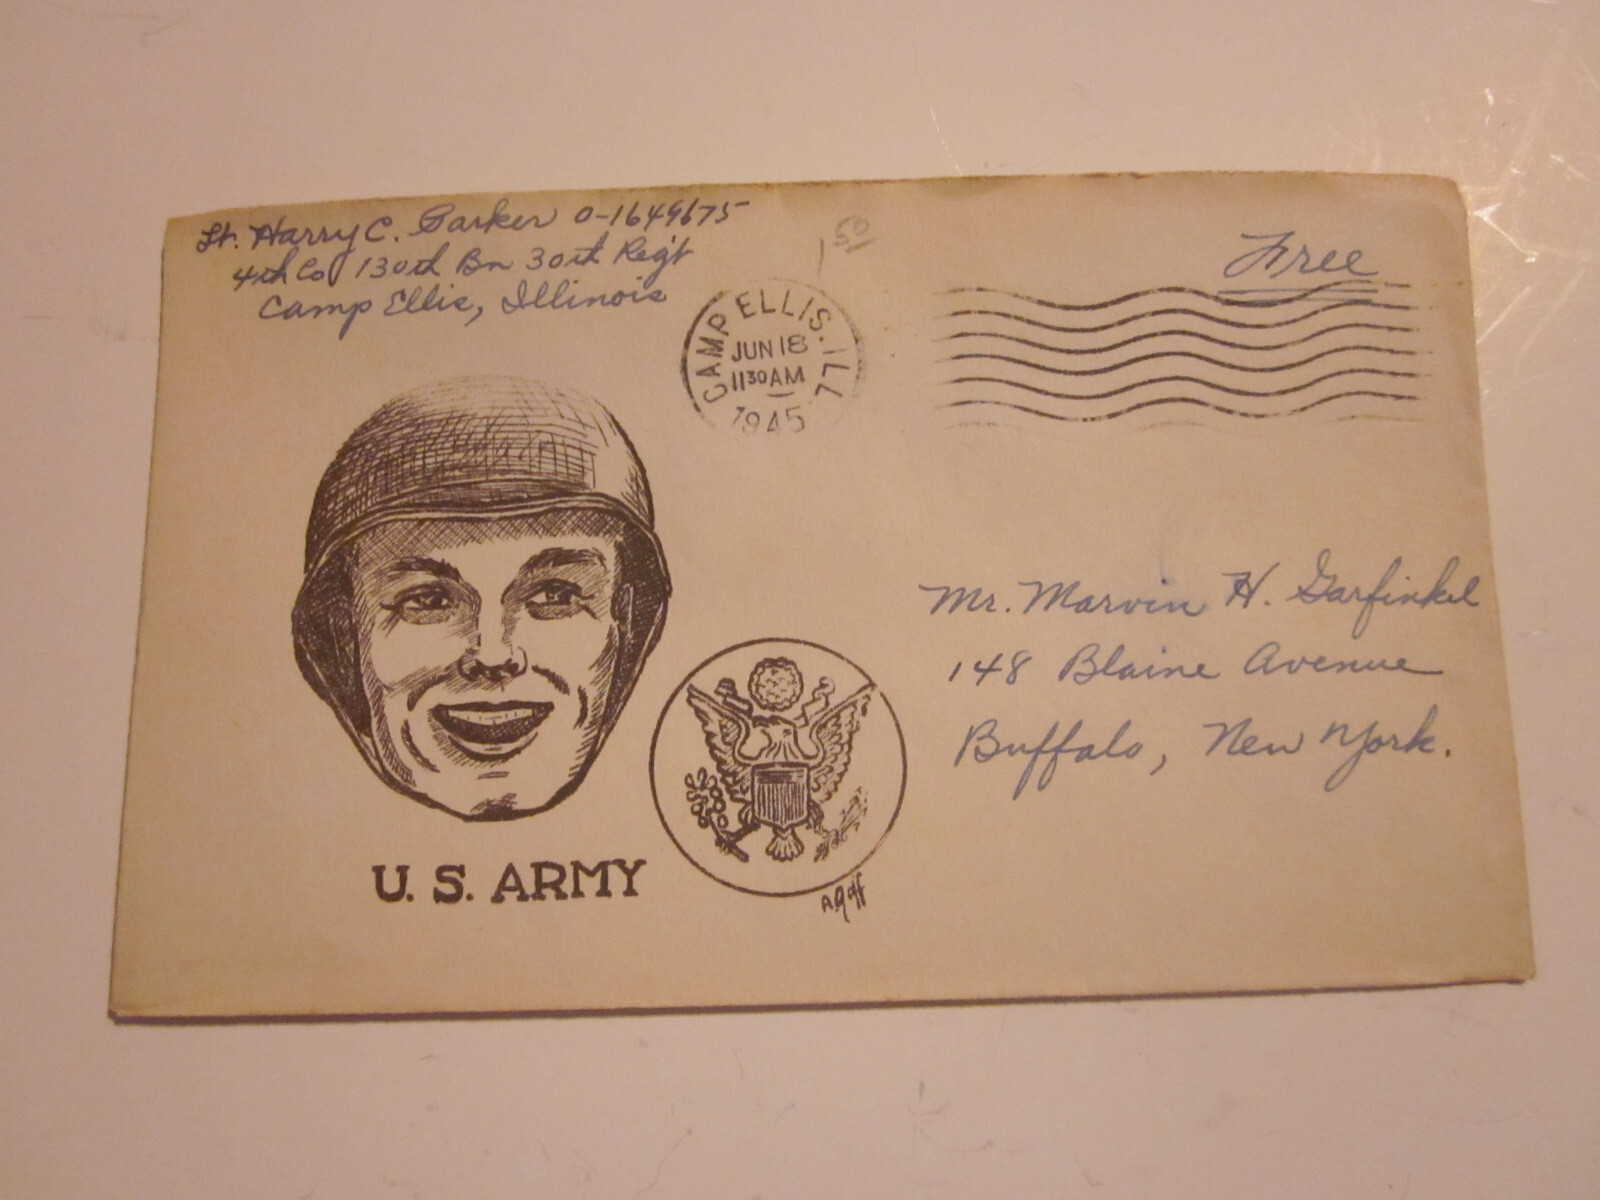 Lt. Harry C. Barker O-1649675
4th Co 130th Bn 30th Reg't
Camp Ellis, Illinois
Free
CAMP ELLIS. ILL
JUN 18
1130AM
1945
Mr. Marvin H. Garfinkel
148 Blaine Avenue
Buffalo, New York.
U. S. ARMY